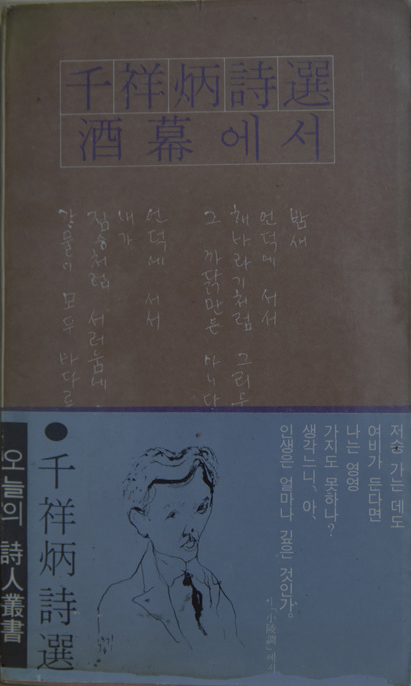 千祥炳詩選
酒幕에서
밤새
언덕에 서서
해바라기처럼 그리움에
그 까닭만은 아니다
언덕에 서서
내가
짐승처럼 서러움에
강물이 모두 바다로
저승 가는 데도
여비가 든다면
나는 영영
가지도 못하나?
생각느니, 아,
인생은 얼마나 깊은 것인가.
「小陵調」에서
●千祥炳詩選
오늘의 詩人叢書